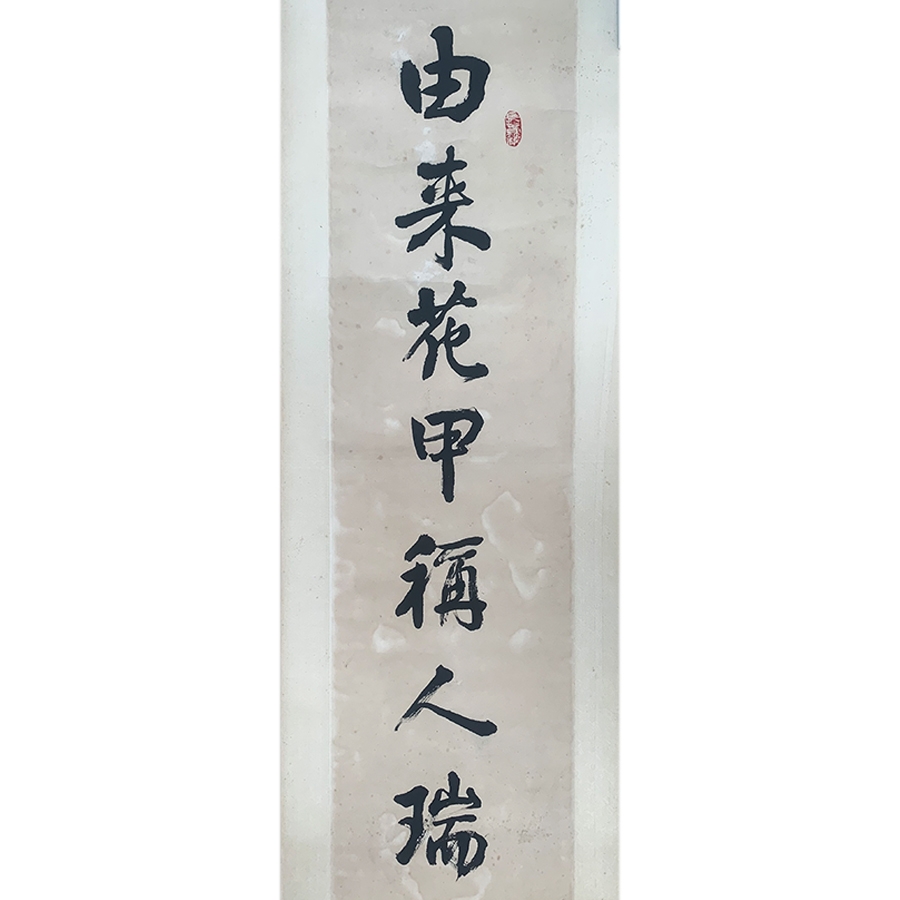 由来花甲稱人瑞